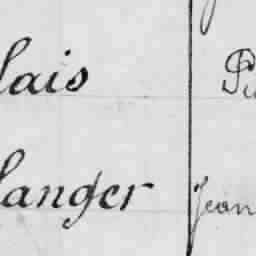 lais
langer Jean